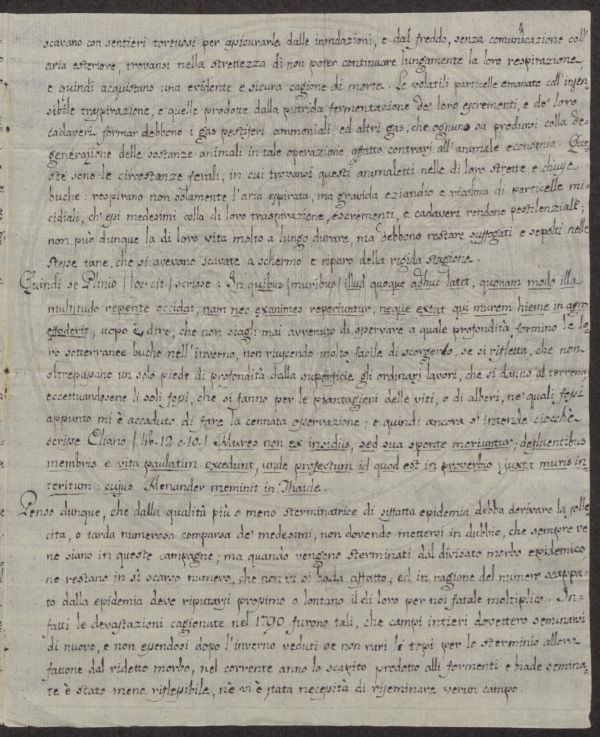 4
scavano con sentieri tortuosi per assicurarle dalle inondazioni, e dal freddo, senza comunicazione coll'
aria esteriore, trovansi nella strettezza di non poter continuare lungamente la loro respirazione,
e quindi acquistano una evidente e sicura cagione di morte. Le volatili particelle emanate coll'insen-
sibile traspirazione, e quelle prodotte dalla putrida fermentazione de' loro escrementi, e de' loro
cadaveri formar debbono i gas pestiferi ammoniali, ed altri gas, che ognuno sa prodursi colla de-
generazione delle sostanze animali in tale operazione, affatto contrari all'animale economia. Que-
ste sono le circostanze ferali, in cui trovansi questi animaletti nelle di loro strette e chiuse
buche: respirano non solamente l'aria espirata, ma gravida eziandio e ricolma di particelle mi-
cidiali, ch'essi medesimi colla di loro traspirazione, escrementi, e cadaveri rendono pestilenziale:
non può dunque la di loro vita molto a lungo durare, ma debbono restare suffogati e sepolti nelle
stesse tane, che si avevano scavate a schermo e riparo della rigida stagione.
Quindi se Plinio / loc. cit. / scrisse: In quibus / muribus / illud quoque adhuc latet, quonam modo illa
multitudo repente occidat, nam nec exanimes reperiuntur, neque extat qui murem hieme in agro
effoderit; uopo è dire, che non siagli mai avvenuto di osservare a quale profondità formino le lo-
ro sotterranee buche nell'inverno, non riuscendo molto facile di scorgerlo, se si rifletta, che non
oltrepassano un solo piede di profondità dalla superficie gli ordinarj lavori, che si danno al terreno
eccettuandosene li soli fossi, che si fanno per le piantagioni delle viti, o di alberi, ne' quali fossi
appunto mi è accaduto di fare la cennata osservazione; e quindi ancora s'intende ciocchè
scrisse Eliano / lib. 12. c. 10. / Mures non ex insidiis, sed sua sponte moriuntur; defluentibus
membris e vita paulatim excedunt, unde profectum id quod est in proverbio; juxta muris in-
teritum: cujus Menander meminit in Thaide.
Penso dunque, che dalla qualità più o meno sterminatrice di siffatta epidemia debba derivare la solle-
cita, o tarda numerosa comparsa de' medesimi, non dovendo mettersi in dubbio, che sempre ve
ne siano in queste campagne; ma quando vengono sterminati dal divisato morbo epidemico
ne restano in sì scarso numero, che non vi si bada affatto; ed in ragione del numero scappa-
to dalla epidemia deve riputarsi prossimo o lontano il di loro per noi fatale moltiplico. In-
fatti le devastazioni cagionate nel 1790 furono tali, che campi intieri dovettero seminarsi
di nuovo, e non essendosi dopo l'inverno veduti se non rari li topi per lo sterminio allora
fattone dal ridetto morbo, nel corrente anno lo scapito prodotto alli formenti e biade semina-
te è stato meno riflessibile, nè vi è stata necessità di riseminare verun campo.